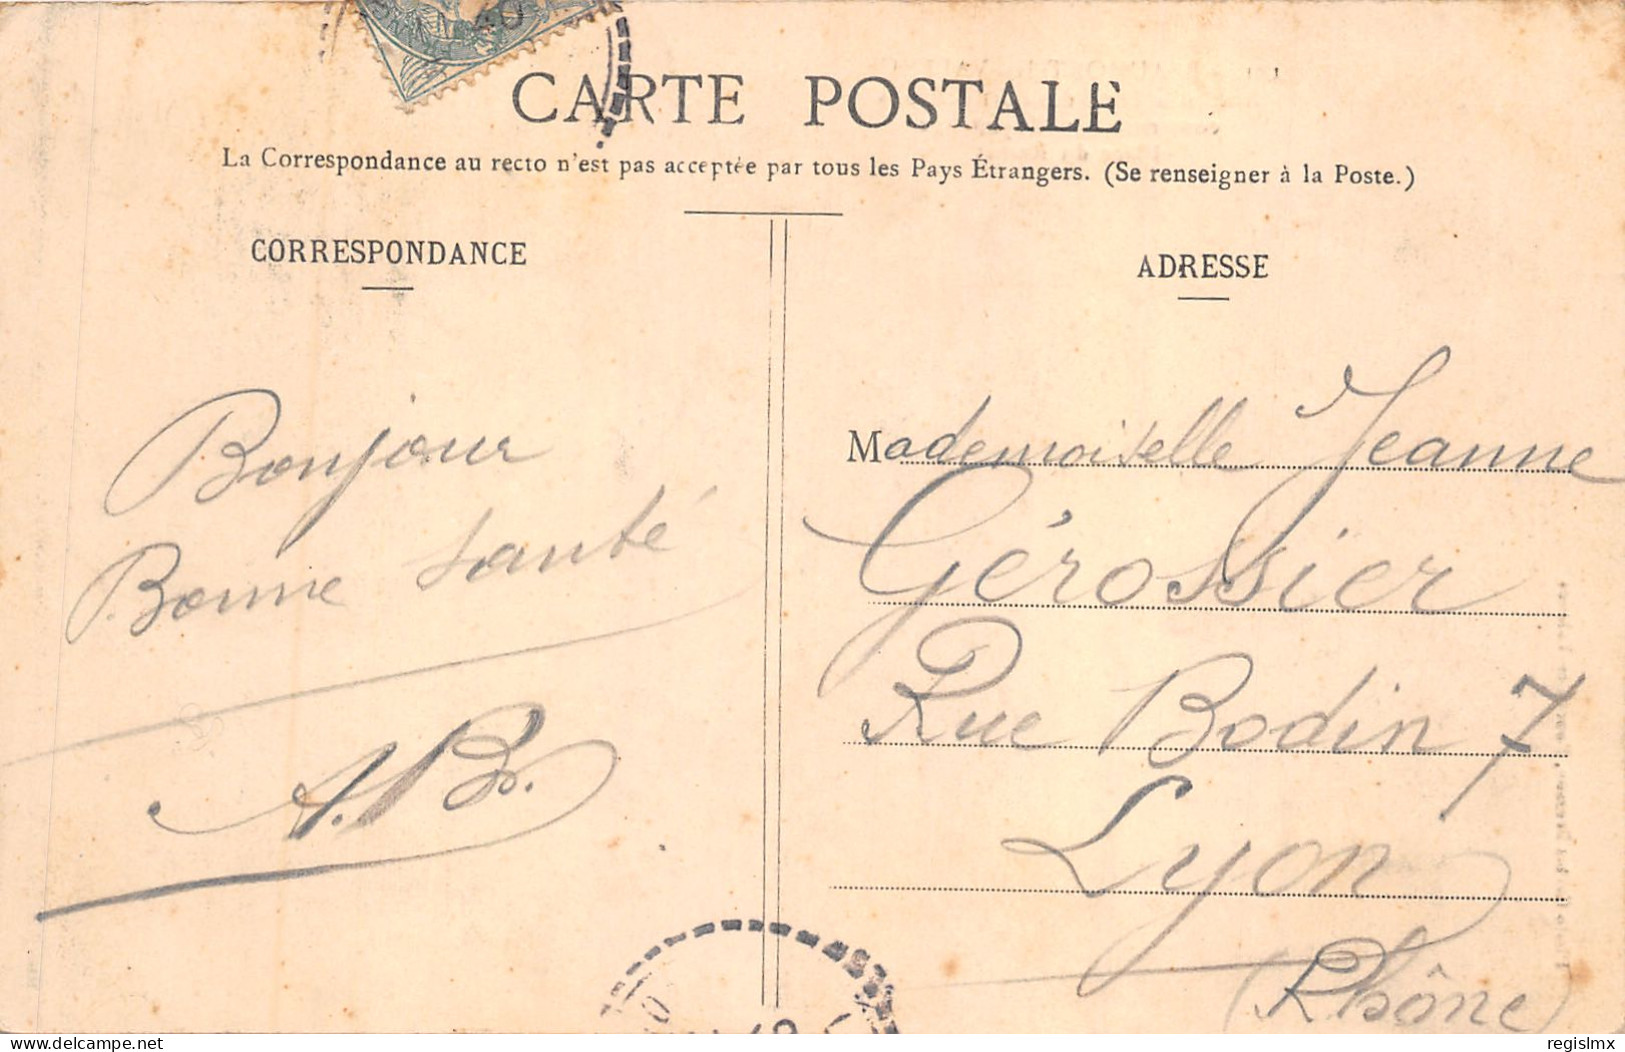 CARTE POSTALE
La Correspondance au recto n'est pas acceptée par tous les Pays Étrangers. (Se renseigner à la Poste.)
CORRESPONDANCE
Bonjour
Bonne santé
A.B.
ADRESSE
Mademoiselle Jeanne
Gérossier
Rue Bodin 7
Lyon
(Rhône)
www.delcampe.net
regislmx